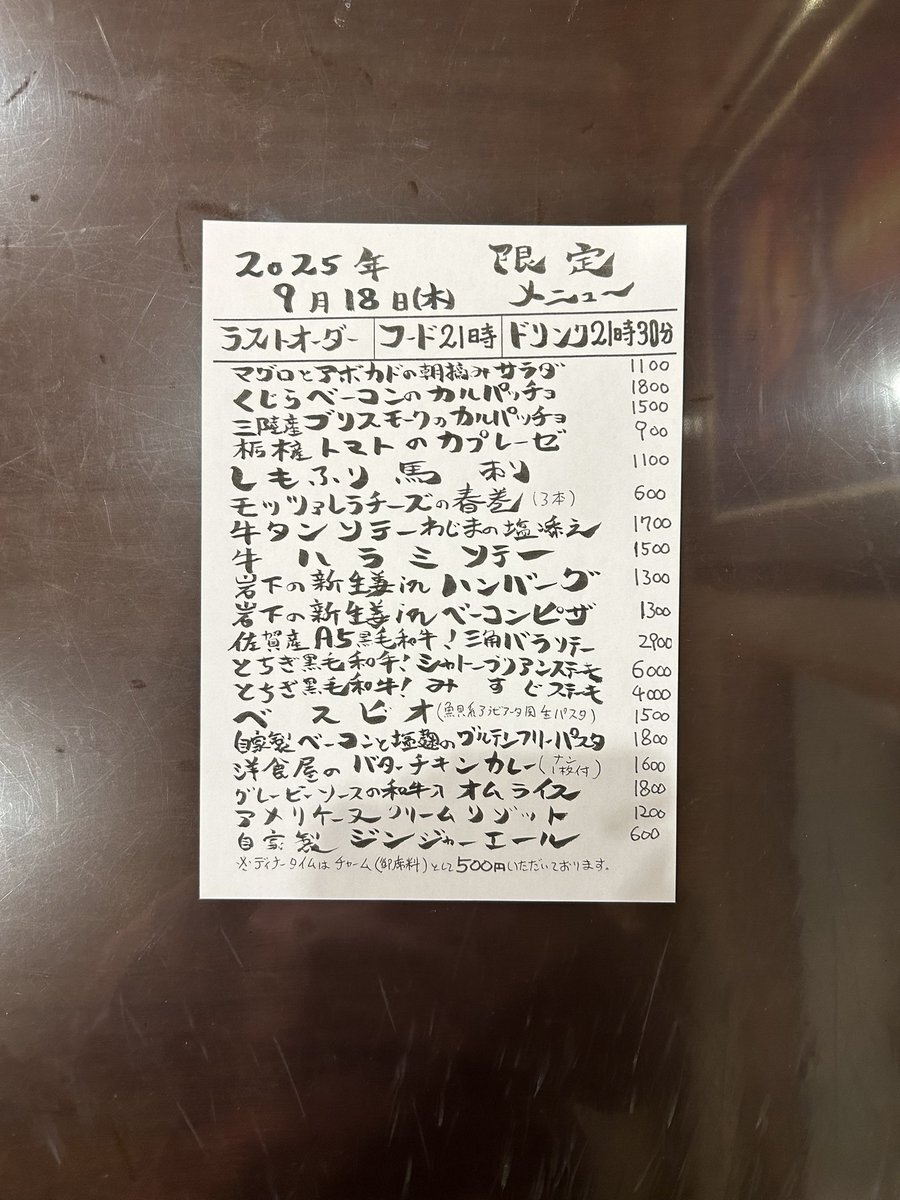 2025年 限定
9月18日(木) メニュー
ラストオーダー フード21時 ドリンク21時30分
マグロとアボカドの朝摘みサラダ 1100
くじらベーコンのカルパッチョ 1800
三陸産ブリスモークのカルパッチョ 1500
栃木産トマトのカプレーゼ 900
しもふり馬刺 1100
モッツァレラチーズの春巻(3本) 600
牛タンソテーわじまの塩添え 1700
牛ハラミソテー 1500
岩下の新生姜inハンバーグ 1300
岩下の新生姜inベーコンピザ 1300
佐賀産A5黒毛和牛!三角バラソテー 2900
とちぎ黒毛和牛!シャトーブリアンステーキ 6000
とちぎ黒毛和牛!みすじステーキ 4000
ベスビオ(魚貝系アラビアータ風生パスタ) 1500
自家製ベーコンと塩麹のグルテンフリーパスタ 1800
洋食屋のバターチキンカレー(ナン1枚付) 1600
グレービーソースの和牛入オムライス 1800
アメリケーヌクリームリゾット 1200
自家製ジンジャーエール 600
※ディナータイムはチャーム(御席料)として500円いただいております。